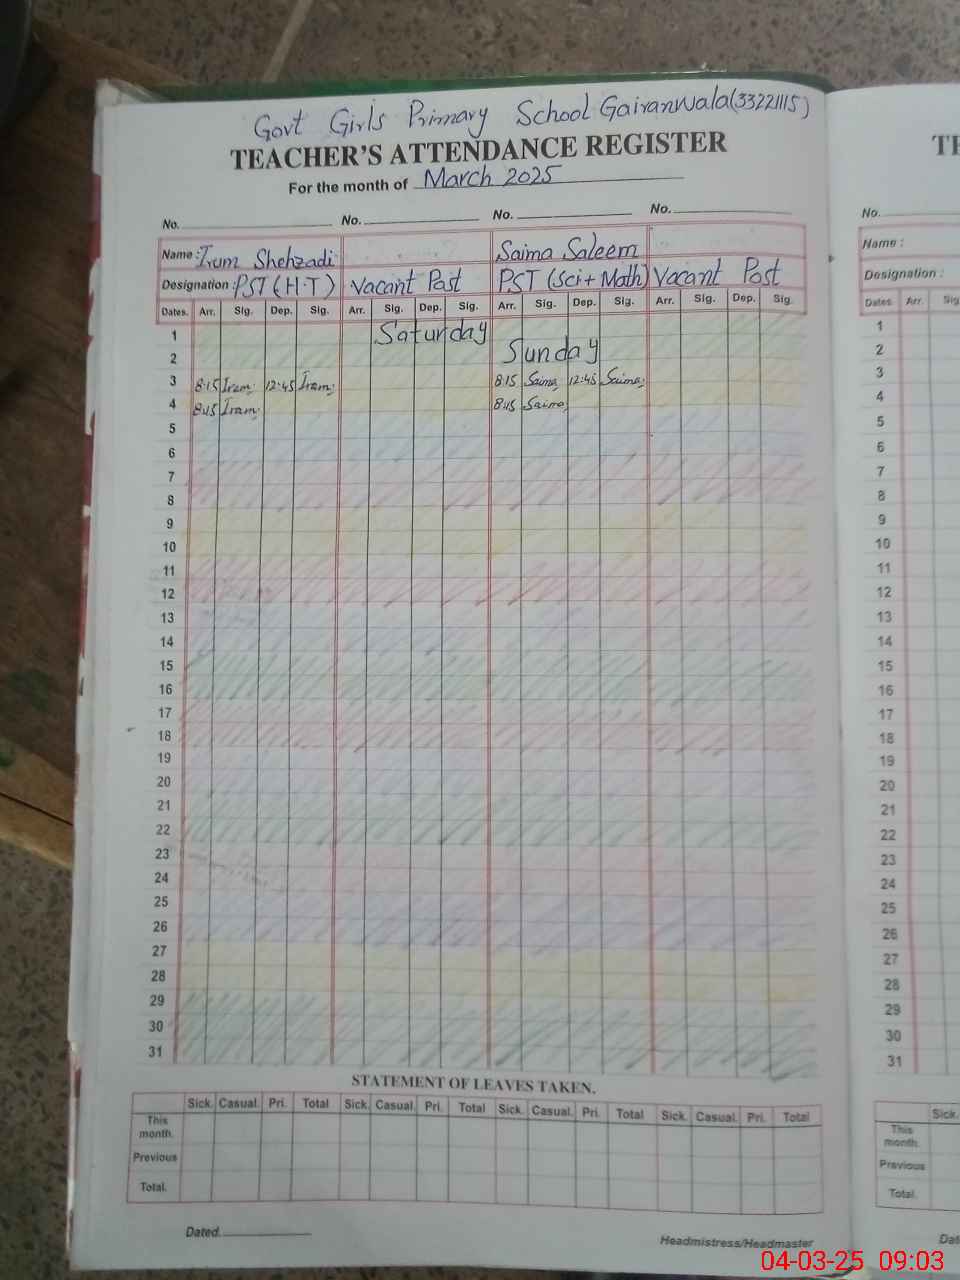 Govt Girls Primary School Gairanwala (33221115)
TEACHER'S ATTENDANCE REGISTER
For the month of March 2025
No. No. No. No.
Name : Irum Shehzadi Saima Saleem
Designation : PST (H.T) Vacant Post PST (Sci + Math) Vacant Post
Dates. Arr. Sig. Dep. Sig. Arr. Sig. Dep. Sig. Arr. Sig. Dep. Sig. Arr. Sig. Dep. Sig.
1 Saturday
2 Sunday
3 8:15 Iram 12:45 Iram 8:15 Saima 12:45 Saima
4 8:45 Iram 8:45 Saima
5
6
7
8
9
10
11
12
13
14
15
16
17
18
19
20
21
22
23
24
25
26
27
28
29
30
31
STATEMENT OF LEAVES TAKEN.
Sick. Casual. Pri. Total Sick. Casual. Pri. Total Sick. Casual. Pri. Total Sick. Casual. Pri. Total
This month.
Previous
Total.
Dated.
Headmistress/Headmaster
No.
Name :
Designation :
Dates. Arr.
1
2
3
4
5
6
7
8
9
10
11
12
13
14
15
16
17
18
19
20
21
22
23
24
25
26
27
28
29
30
31
Sick.
This month.
Previous
Total.
04-03-25 09:03